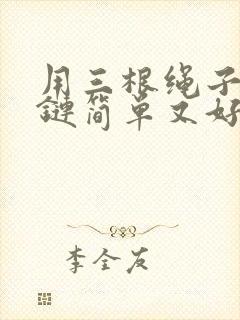 用三根绳子
鏈简单又好
李全友